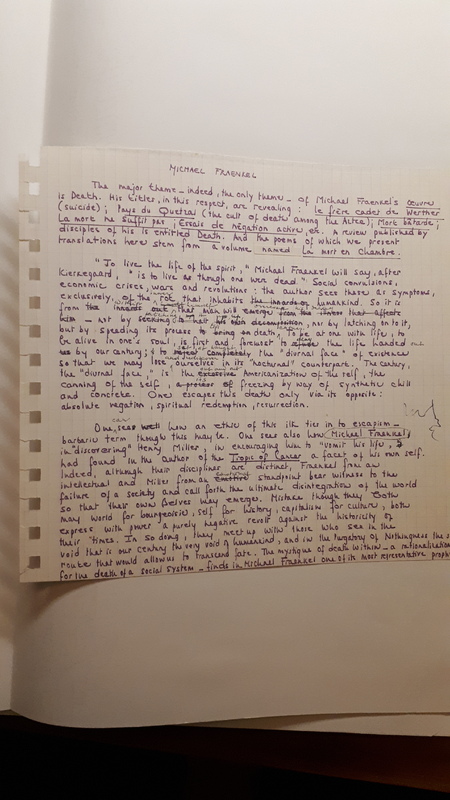 MICHAEL FRAENKEL
The major theme - indeed, the only theme - of Michael Fraenkel's œuvre
is Death. His titles, in this respect, are revealing: le frère cadet de Werther
(suicide); Pays du Quetzal (the cult of death among the Aztec); Mort bâtarde;
La mort ne suffit pas; Essais de négation active, etc. A review published by
disciples of his is entitled Death. And the poems of which we present
translations here stem from a volume named La mort en chambre.
"To live the life of the spirit," Michael Fraenkel will say, after
Kierkegaard, "is to live as though one were dead." Social convulsions,
economic crises, wars and revolutions: the author sees these as symptoms,
exclusively, of the rot that inhabits the innards of humankind. So it is
from the inwards out that man will emerge from the
him - not by seeking his own decomposition, nor by latching on to it,
but by speeding its process to bring on death. To be at one with life, to
be alive in one's soul, is first and foremost to the life handed
us by our century; to reject completely the "diurnal face" of existence
so that we may lose ourselves in its "nocturnal" counterpart. The century,
the "diurnal face," is the excessive Americanization of the self, the
canning of the self, a process of freezing by way of synthetic chill
and concrete. One escapes this death only via its opposite:
absolute negation, spiritual redemption, resurrection.
One sees well how an ethic of this ilk ties in to escapism -
barbaric term though this may be. One sees also how Michael Fraenkel,
in "discovering" Henry Miller, in encouraging him to "vomit his life,"
had found in the author of the Tropic of Cancer a facet of his own self.
Indeed, although their disciplines are distinct, Fraenkel from an
intellectual and Miller from an emotive standpoint bear witness to the
failure of a society and call forth the ultimate disintegration of the world
so that their own selves may emerge. Mistake though they both
may world for bourgeoisie, self for history, capitalism for culture, both
express with power a purely negative revolt against the historicity of
their times. In so doing, they meet up with those who see in the
void that is our century the very void of humankind, and in the purgatory of Nothingness the
route that would allow us to transcend fate. The mystique of death within - a rationalization
for the death of a social system - finds in Michael Fraenkel one of its most representative